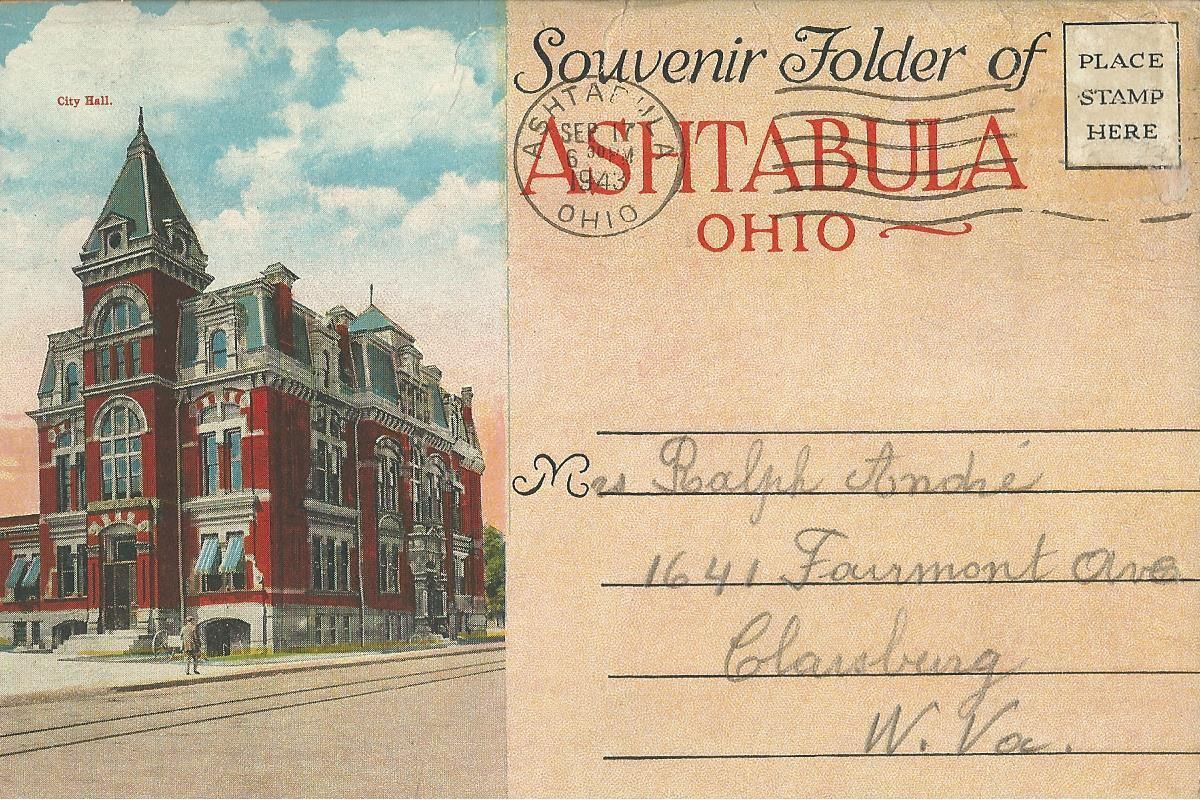 City Hall.
Souvenir Folder of
ASHTABULA
OHIO
PLACE
STAMP
HERE
ASHTABULA
SEP 17
6 30 PM
1943
OHIO
Mrs Ralph André
1641 Fairmont Ave
Clarsburg
W. Va.